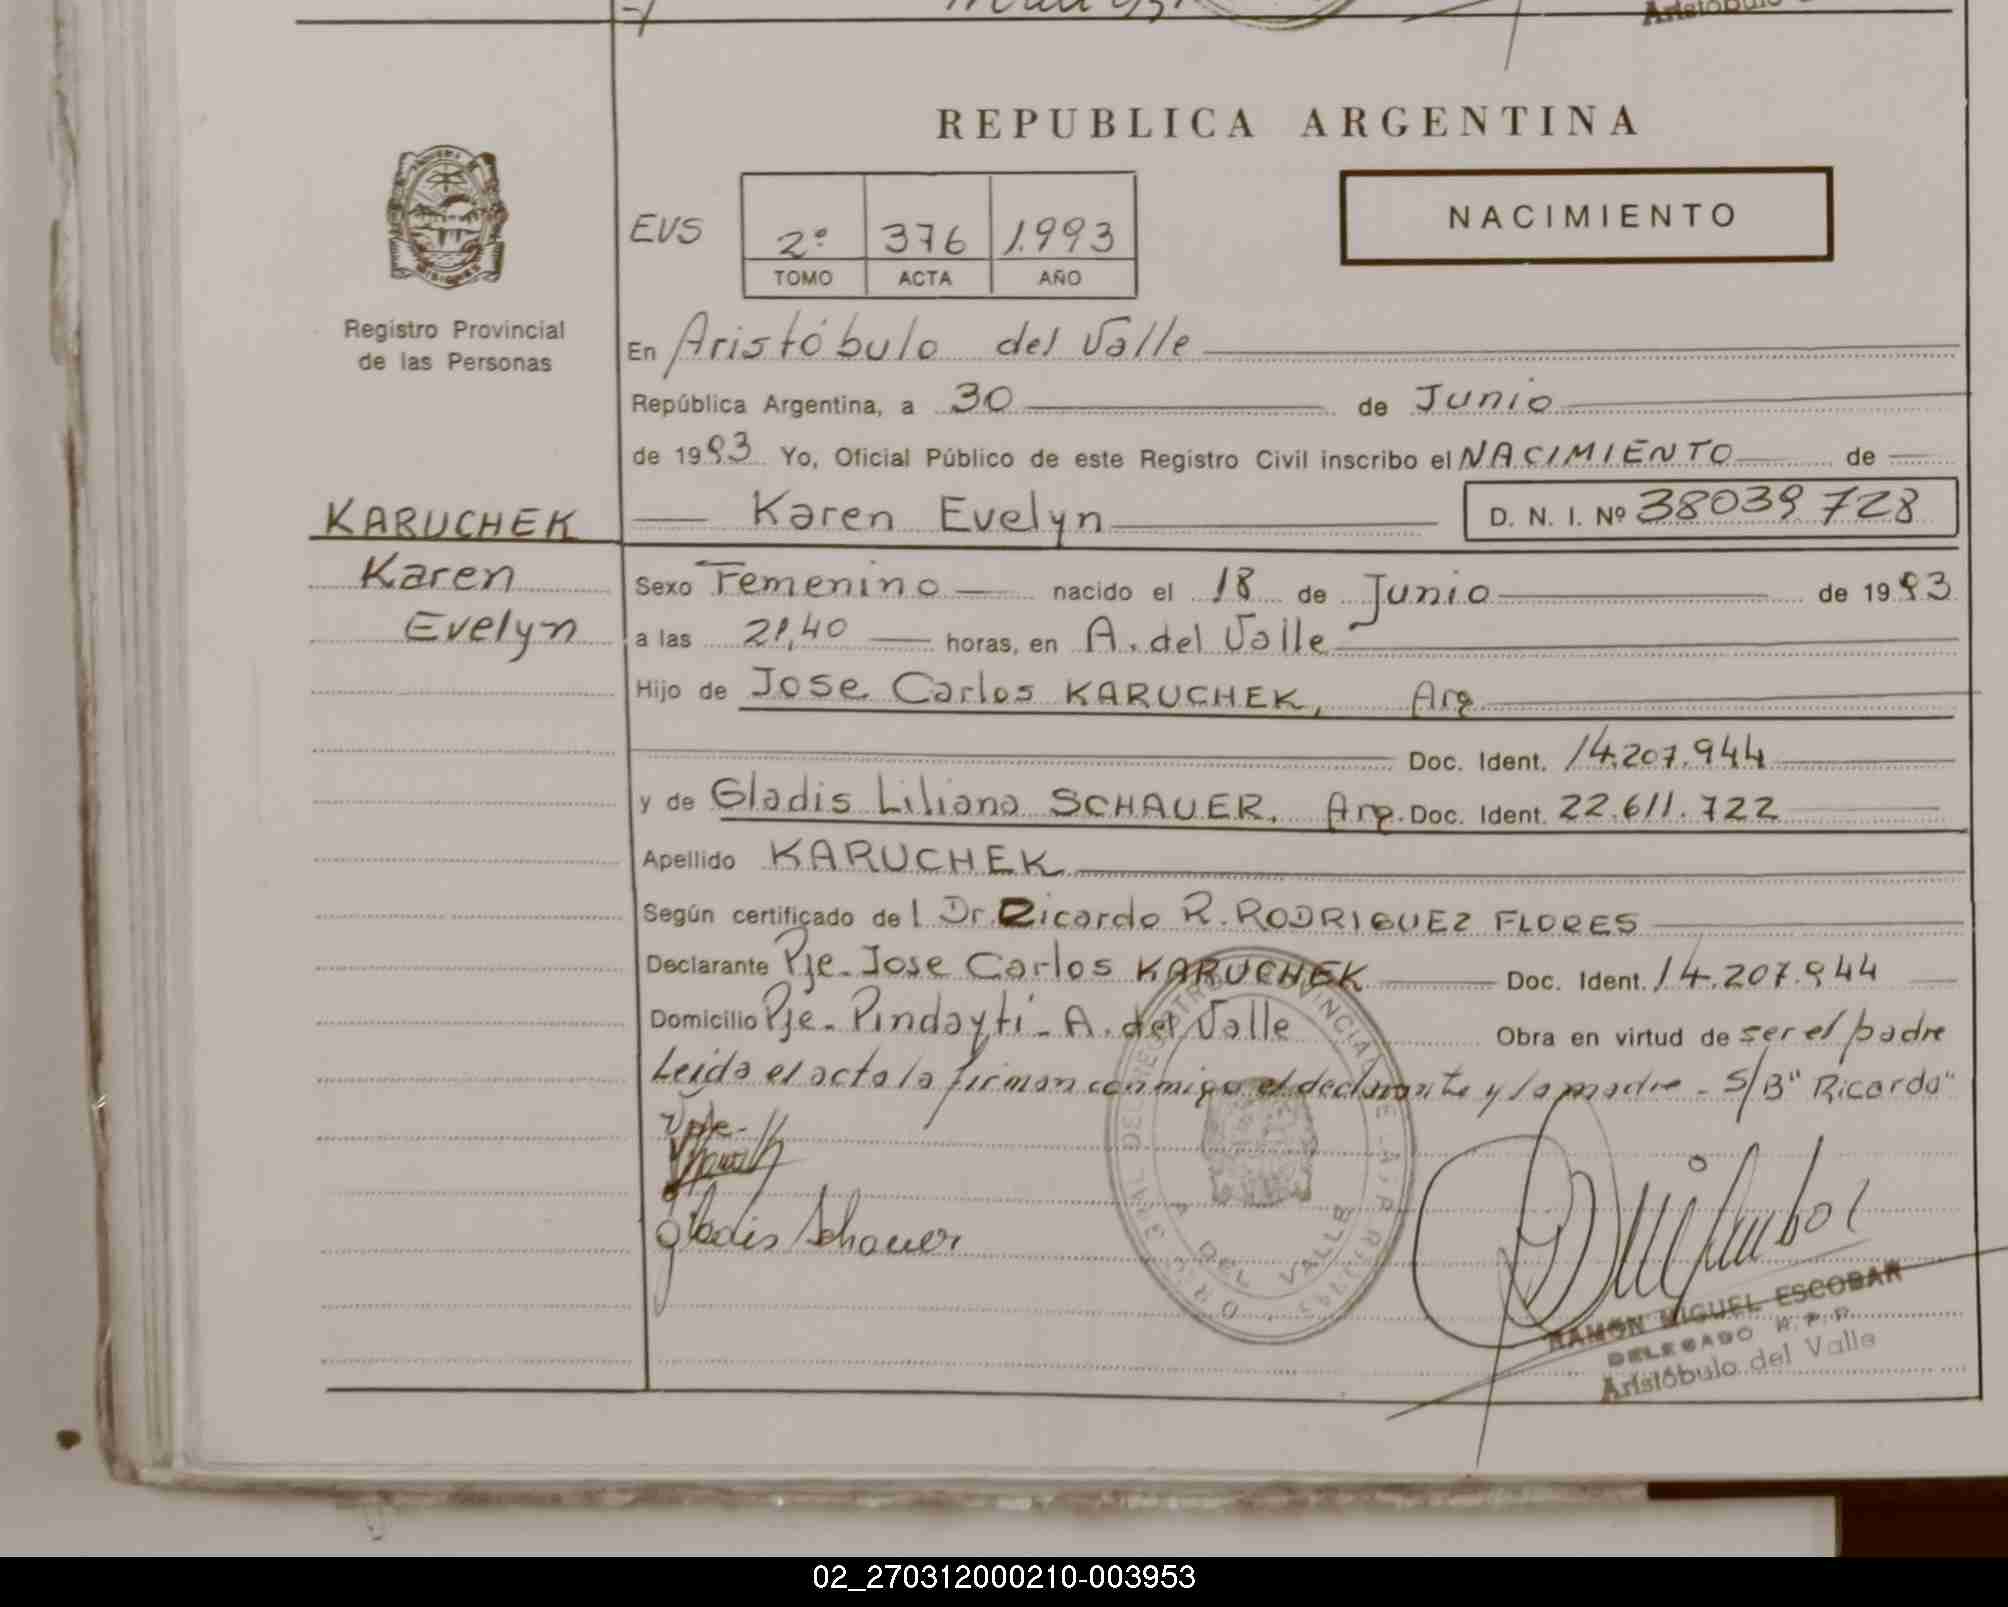 REPUBLICA ARGENTINA
NACIMIENTO
EVS
2º 376 1.993
TOMO ACTA AÑO
Registro Provincial
de las Personas
En Aristóbulo del Valle
República Argentina, a 30 de Junio
de 1993 Yo, Oficial Público de este Registro Civil inscribo el NACIMIENTO de
Karen Evelyn D. N. I. Nº 38039728
KARUCHEK
Karen
Evelyn
Sexo Femenino nacido el 18 de Junio de 1993
a las 21,40 horas, en A. del Valle
Hijo de Jose Carlos KARUCHEK, Arg
Doc. Ident. 14.207.944
y de Gladis Liliana SCHAUER. Arg. Doc. Ident. 22.611.722
Apellido KARUCHEK
Según certificado de l Dr. Ricardo R. RODRIGUEZ FLORES
Declarante Pje. Jose Carlos KARUCHEK Doc. Ident. 14.207.944
Domicilio Pje. Pindayti - A. del Valle Obra en virtud de ser el padre
Leida el acta la firman conmigo el declarante y la madre - S/B "Ricardo"
Vale-
Gladis Schauer
A DEL VALLE
RAMON MIGUEL ESCOBAR
DELEGADO R.P.P.
Aristóbulo del Valle
02_270312000210-003953